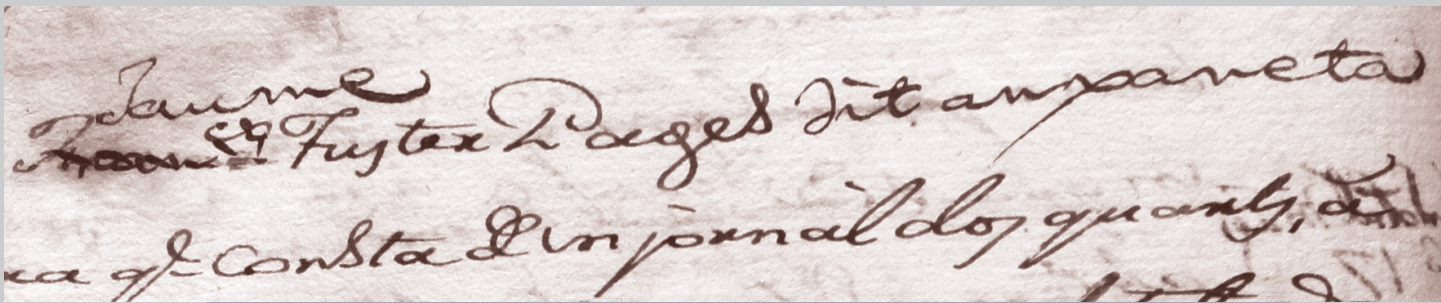 Jaume
Fuster Pages dit anpaneta
ra q.e consta de un jornal dos quarts, a